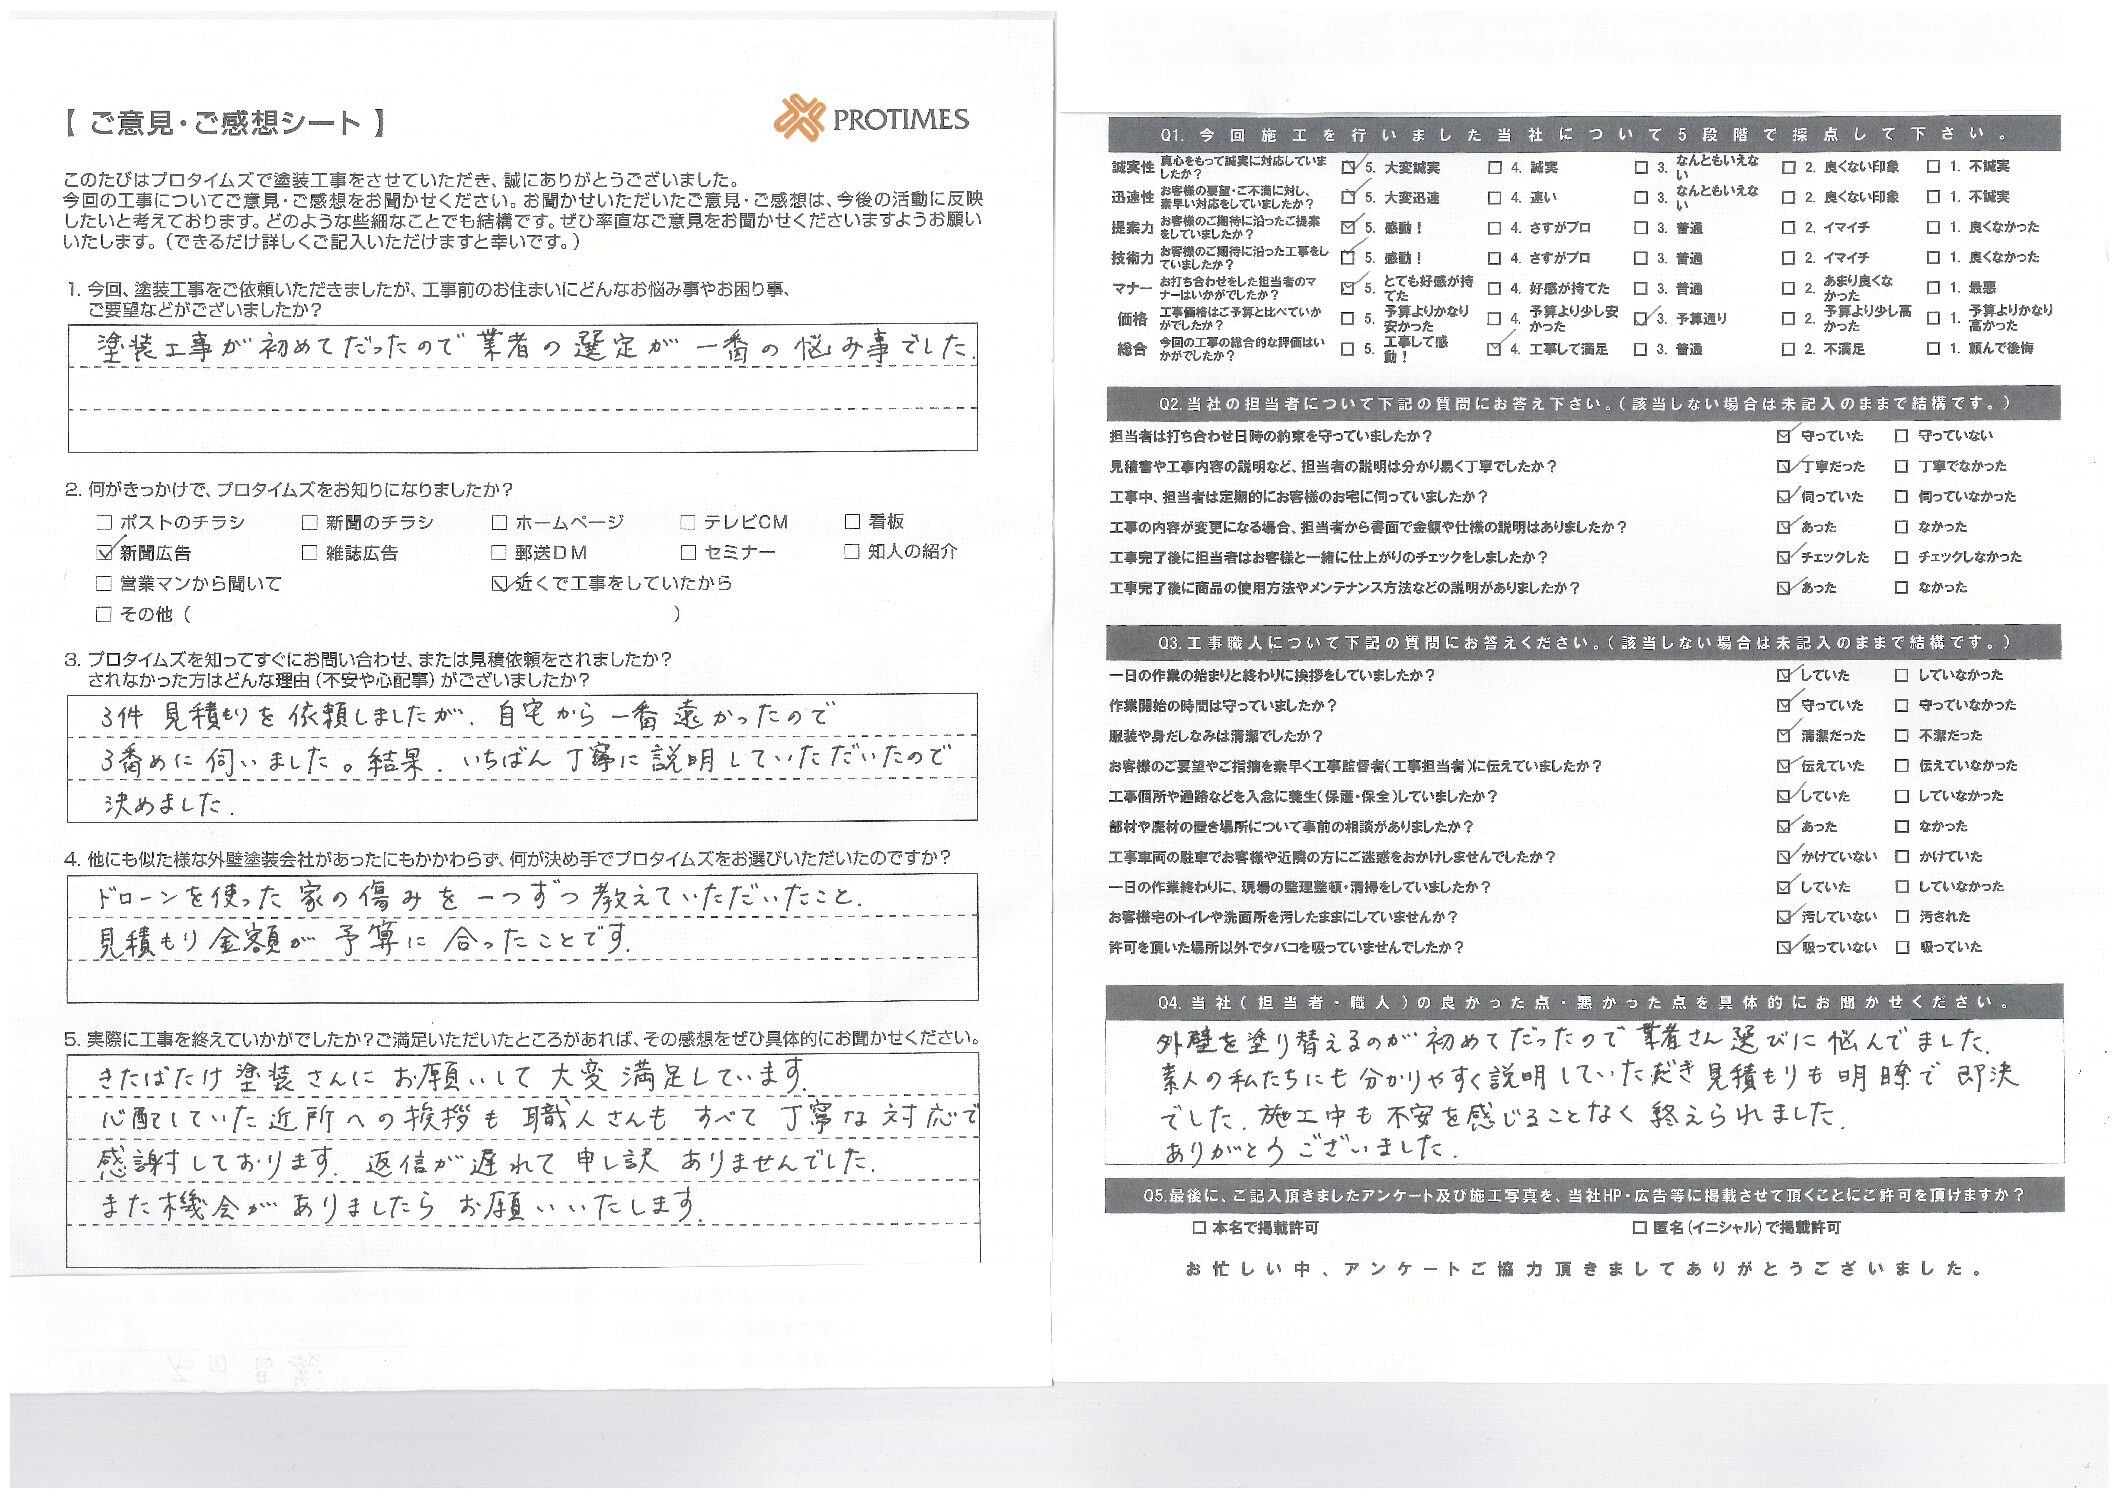 【 ご意見・ご感想シート 】
PROTIMES
このたびはプロタイムズで塗装工事をさせていただき、誠にありがとうございました。
今回の工事についてご意見・ご感想をお聞かせください。お聞かせいただいたご意見・ご感想は、今後の活動に反映
したいと考えております。どのような些細なことでも結構です。ぜひ率直なご意見をお聞かせくださいますようお願い
いたします。（できるだけ詳しくご記入いただけますと幸いです。）
1. 今回、塗装工事をご依頼いただきましたが、工事前のお住まいにどんなお悩み事やお困り事、
ご要望などがございましたか？
塗装工事が初めてだったので業者の選定が一番の悩み事でした.
2. 何がきっかけで、プロタイムズをお知りになりましたか？
□ ポストのチラシ □ 新聞のチラシ □ ホームページ □ テレビCM □ 看板
☑ 新聞広告 □ 雑誌広告 □ 郵送DM □ セミナー □ 知人の紹介
□ 営業マンから聞いて ☑ 近くで工事をしていたから
□ その他（ ）
3. プロタイムズを知ってすぐにお問い合わせ、または見積依頼をされましたか？
されなかった方はどんな理由（不安や心配事）がございましたか？
3件 見積もりを依頼しましたが、自宅から一番遠かったので
3番めに伺いました。結果、いちばん丁寧に説明していただいたので
決めました.
4. 他にも似た様な外壁塗装会社があったにもかかわらず、何が決め手でプロタイムズをお選びいただいたのですか？
ドローンを使った家の傷みを一つずつ教えていただいたこと.
見積もり金額が予算に合ったことです.
5. 実際に工事を終えていかがでしたか？ご満足いただいたところがあれば、その感想をぜひ具体的にお聞かせください。
きたばたけ塗装さんにお願いして大変満足しています.
心配していた近所への挨拶も職人さんもすべて丁寧な対応で
感謝しております. 返信が遅れて申し訳ありませんでした.
また機会がありましたらお願いいたします.
Q1. 今回施工を行いました当社について5段階で採点して下さい。
誠実性 真心をもって誠実に対応していましたか？ ☑ 5. 大変誠実 □ 4. 誠実 □ 3. なんともいえない □ 2. 良くない印象 □ 1. 不誠実
迅速性 お客様の要望・ご不満に対し、素早い対応をしていましたか？ ☑ 5. 大変迅速 □ 4. 速い □ 3. なんともいえない □ 2. 良くない印象 □ 1. 不誠実
提案力 お客様のご期待に沿ったご提案をしていましたか？ ☑ 5. 感動！ □ 4. さすがプロ □ 3. 普通 □ 2. イマイチ □ 1. 良くなかった
技術力 お客様のご期待に沿った工事をしていましたか？ ☑ 5. 感動！ □ 4. さすがプロ □ 3. 普通 □ 2. イマイチ □ 1. 良くなかった
マナー お打ち合わせをした担当者のマナーはいかがでしたか？ ☑ 5. とても好感が持てた □ 4. 好感が持てた □ 3. 普通 □ 2. あまり良くなかった □ 1. 最悪
価格 工事価格はご予算と比べていかがでしたか？ □ 5. 予算よりかなり安かった □ 4. 予算より少し安かった ☑ 3. 予算通り □ 2. 予算より少し高かった □ 1. 予算よりかなり高かった
総合 今回の工事の総合的な評価はいかがでしたか？ □ 5. 工事して感動！ ☑ 4. 工事して満足 □ 3. 普通 □ 2. 不満足 □ 1. 頼んで後悔
Q2. 当社の担当者について下記の質問にお答え下さい。（該当しない場合は未記入のままで結構です。）
担当者は打ち合わせ日時の約束を守っていましたか？ ☑ 守っていた □ 守っていない
見積書や工事内容の説明など、担当者の説明は分かり易く丁寧でしたか？ ☑ 丁寧だった □ 丁寧でなかった
工事中、担当者は定期的にお客様のお宅に伺っていましたか？ ☑ 伺っていた □ 伺っていなかった
工事の内容が変更になる場合、担当者から書面で金額や仕様の説明はありましたか？ ☑ あった □ なかった
工事完了後に担当者はお客様と一緒に仕上がりのチェックをしましたか？ ☑ チェックした □ チェックしなかった
工事完了後に商品の使用方法やメンテナンス方法などの説明がありましたか？ ☑ あった □ なかった
Q3. 工事職人について下記の質問にお答えください。（該当しない場合は未記入のままで結構です。）
一日の作業の始まりと終わりに挨拶をしていましたか？ ☑ していた □ していなかった
作業開始の時間は守っていましたか？ ☑ 守っていた □ 守っていなかった
服装や身だしなみは清潔でしたか？ ☑ 清潔だった □ 不潔だった
お客様のご要望やご指摘を素早く工事監督者（工事担当者）に伝えていましたか？ ☑ 伝えていた □ 伝えていなかった
工事個所や通路などを入念に養生（保護・保全）していましたか？ ☑ していた □ していなかった
部材や廃材の置き場所について事前の相談がありましたか？ ☑ あった □ なかった
工事車両の駐車でお客様や近隣の方にご迷惑をおかけしませんでしたか？ ☑ かけていない □ かけていた
一日の作業終わりに、現場の整理整頓・清掃をしていましたか？ ☑ していた □ していなかった
お客様宅のトイレや洗面所を汚したままにしていませんか？ ☑ 汚していない □ 汚された
許可を頂いた場所以外でタバコを吸っていませんでしたか？ ☑ 吸っていない □ 吸っていた
Q4. 当社（担当者・職人）の良かった点・悪かった点を具体的にお聞かせください。
外壁を塗り替えるのが初めてだったので業者さん選びに悩んでました.
素人の私たちにも分かりやすく説明していただき見積もりも明瞭で即決
でした. 施工中も不安を感じることなく終えられました.
ありがとうございました.
Q5. 最後に、ご記入頂きましたアンケート及び施工写真を、当社HP・広告等に掲載させて頂くことにご許可を頂けますか？
□ 本名で掲載許可 □ 匿名（イニシャル）で掲載許可
お忙しい中、アンケートご協力頂きましてありがとうございました。